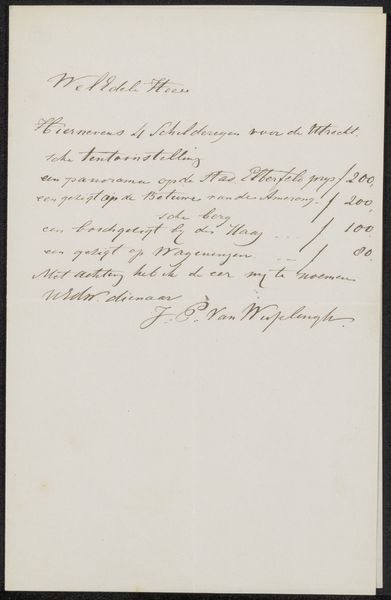 WelEdele Heer
Hiernevens 4 Schilderyen voor de Utrecht
sche tentoonstelling
een panorama op de Stad Elberfeld prys ƒ 200,
een gezigt op de Betuwe van de Amerong- ƒ 200,
sche berg
een boschgezigt by den Haag - - - ƒ 100
een gezigt op Wageningen - - ƒ 80.
Met achting heb ik de eer my te noemen
UEdw. dienaar
J. P. Van Wisselingh.